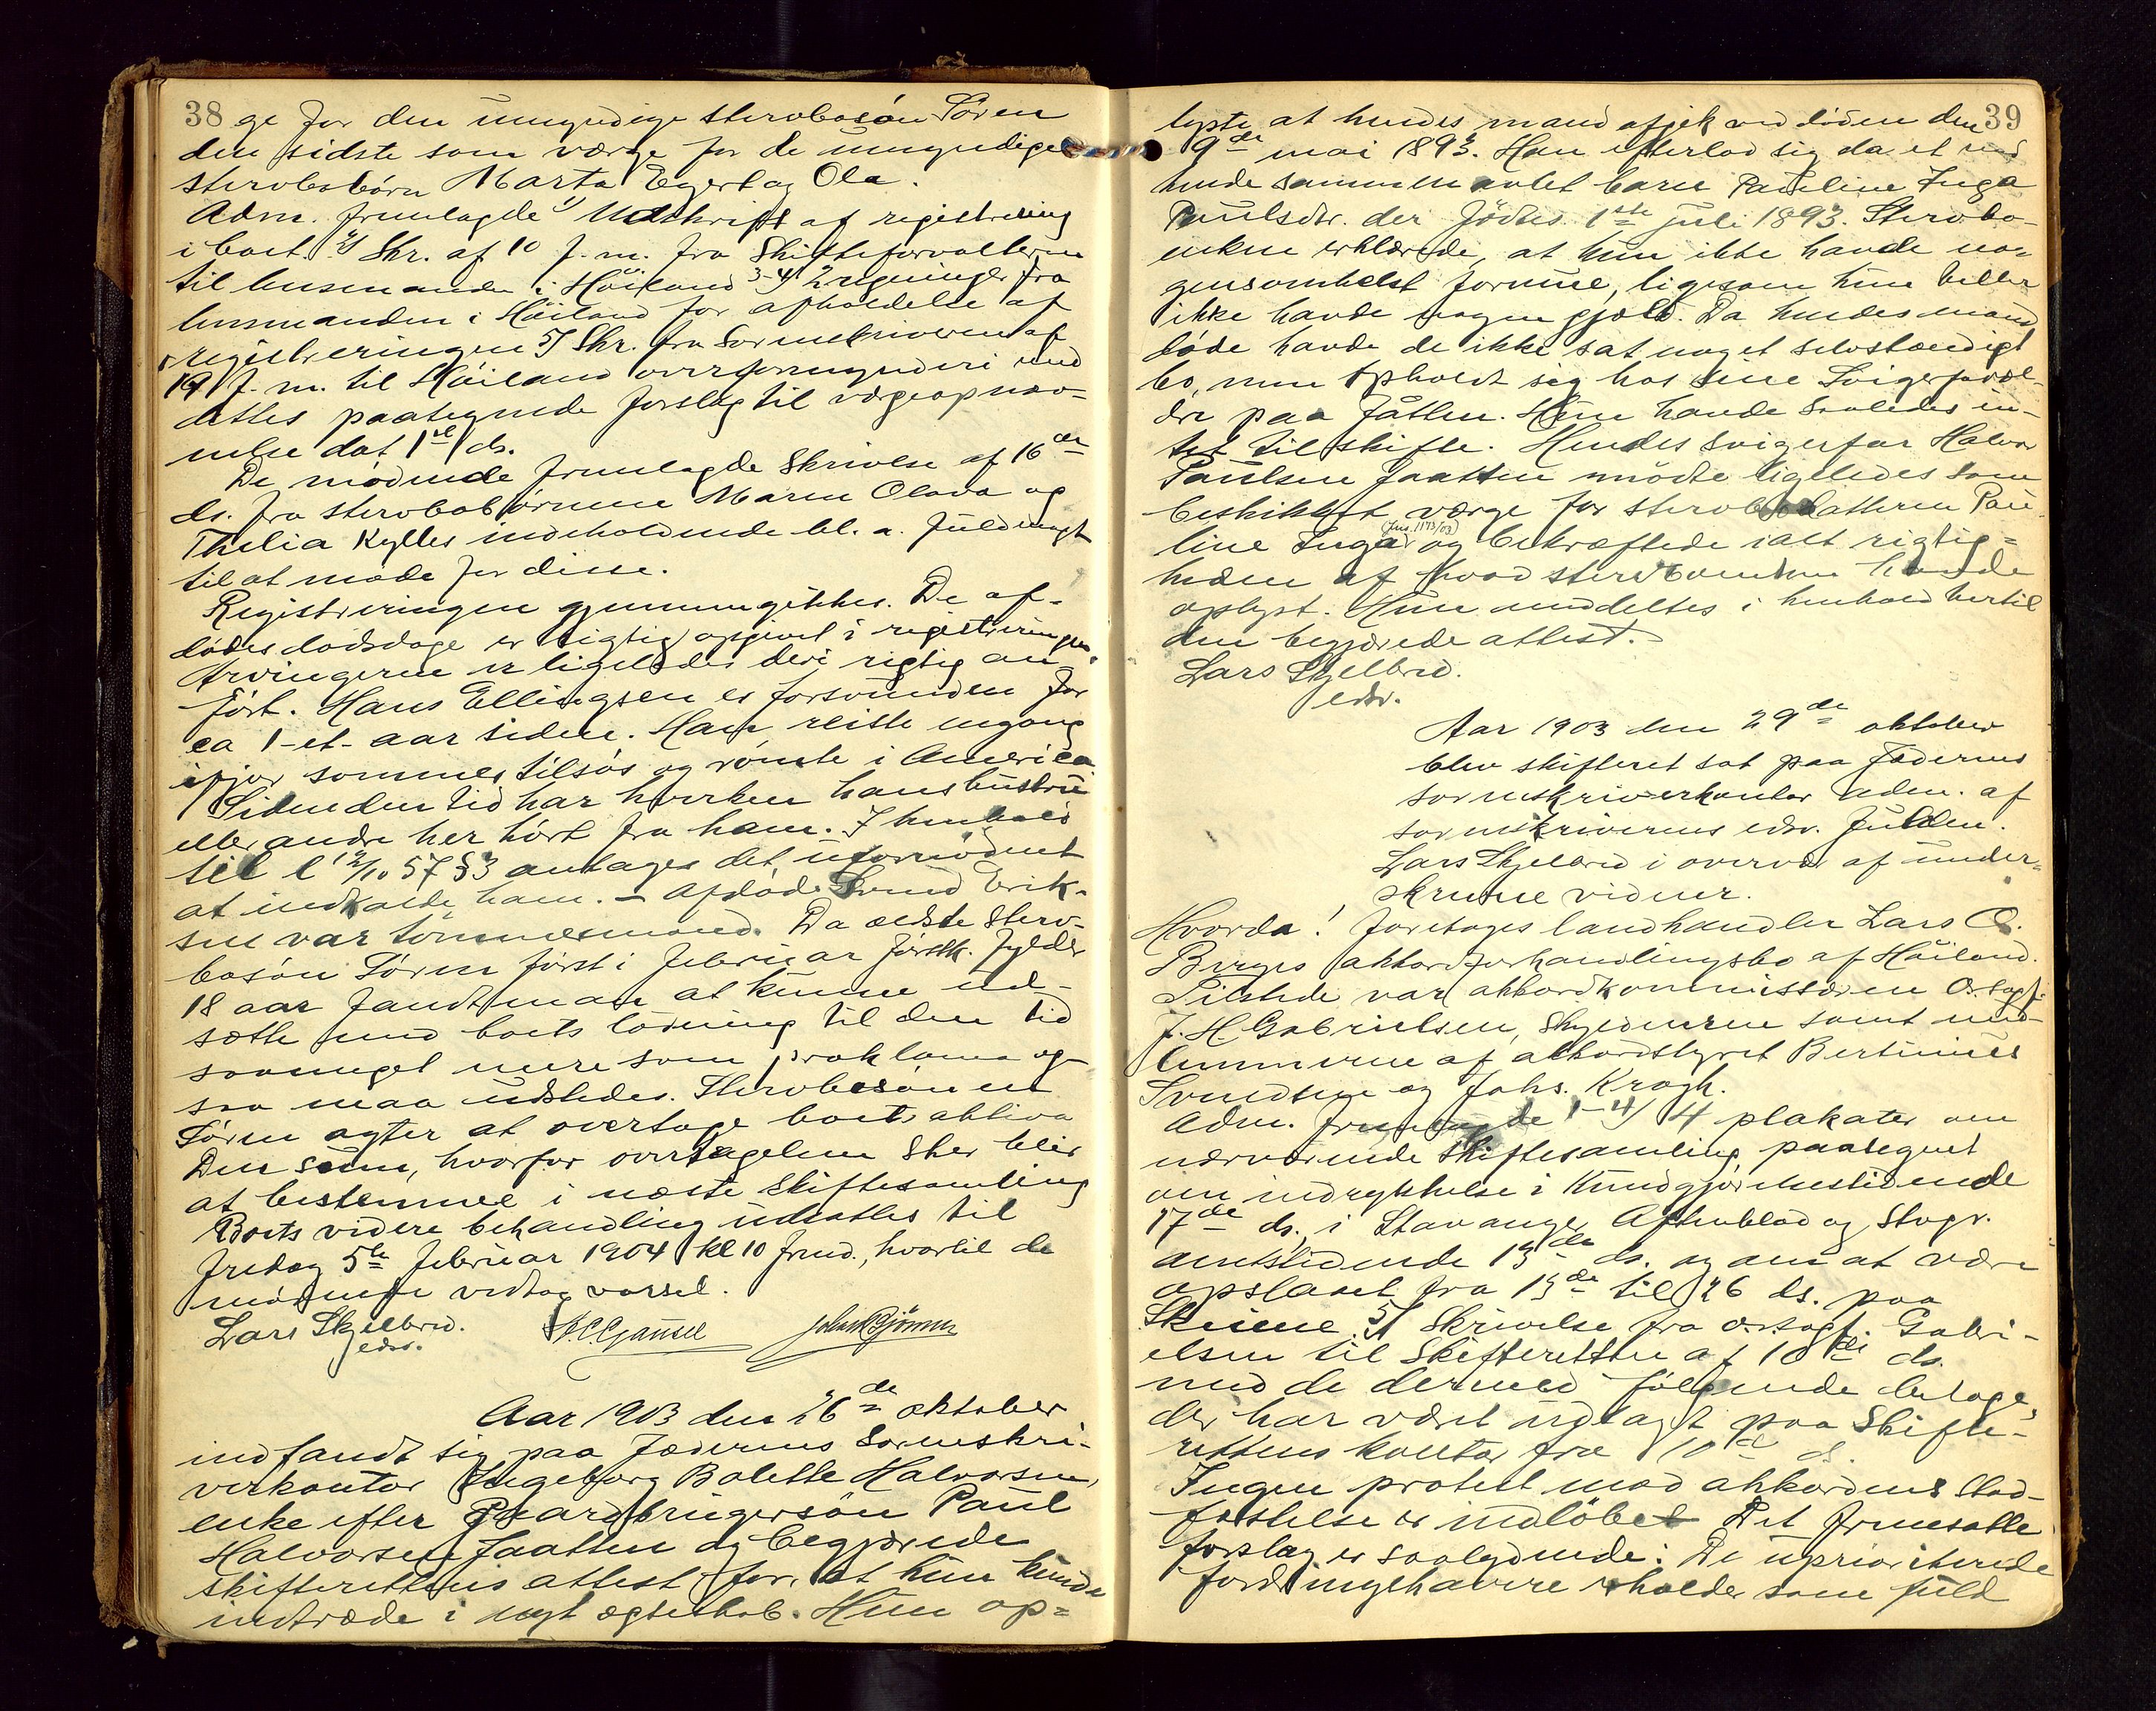 38 ge for den umyndige stervbosön Sören
den sidste som værge for de umyndige
stervbobörn Marta Egert og Ola.
Adm. fremlagde 1) Udskrift af registrering
i boet. 2) Skr. af 10 f. m. fra Skifteforvalteren
til lensmanden i Höiland 3-4) 2 regninger fra
lensmanden i Höiland for afholdelse af
registreringen 5) Skr. fra Sorenskriveren af
19 f. m. til Höiland overformynderi med
dettes paategnede forslag til værgeopnæv-
nelse dat 1ste ds.
De mödende fremlagde Skrivelse af 16de
ds. fra sterbobörnene Maren Olava og
Thelia Kylles indeholdende bl. a. fuldmagt
til at möde for disse.
Registreringen gjennemgikkes. De af-
dödes dödsdage er rigtig opgivet i registreringen.
Arvingerne er ligeledes deri rigtig an-
fört. Hans Ellingsen er forsvunden for
ca 1-et- aar siden. Han reiste engang
ifjor sommer tilsös og römte i America
Siden den tid har hverken hans hustru
eller andre her hört fra ham. I henhold
til l 12/10 57 § 3 antages det uformödent
at indkalde ham. - Afdöde Svend Erik-
sen var tömmermand. Da ældste sterv-
bosön Sören först i februar förstk. fylder
18 aar fandt man at kunne ud-
sætte med boets lösning til den tid
saameget mere som proklama og-
saa maa udstedes. Stervbosönnen
Sören agter at overtage boets aktiva
Den sum, hvorfor overtagelsen sker blir
at bestemme i næste skiftesamling
Boets videre behandling udsattes til
fredag 5te februar 1904 kl 10 fmd., hvortil de
mödende vedtog varsel.
Lars Skjelbred. H. C. Gausel John K Bjömm
edsv.
Aar 1903 den 26de oktober
indfandt sig paa Jæderens Sorenskri-
verkontor Ingeborg Bolette Halvorsen,
enke efter Gaardbrugersön Paul
Halvorsen Jaatten og begjærede
skifterettens attest for, at hun kunde
indtræde i nyt ægteskab. Hun op=
39
lyste at hendes mand afgik ved döden den
9de mai 1893. Han efterlod sig da et med
hende sammen avlet barn Pauline Inga
Paulsdtr. der födtes 1ste juli 1893. Stervbo-
enken erklærede, at hun ikke havde no-
gensomhelst formue, ligesom hun heller
ikke havde nogen gjæld. Da hendes mand
döde havde de ikke sat noget selvstændigt
bo, men opholdt sig hos sine Svigerforæl-
dre paa Jåtten. Hun havde saaledes in-
tet til skifte. Hendes svigerfar Halvor
Paulsen Jaatten mödte ligeledes som
beskikket værge for stervbodatteren Pau-
line Inga (Jnr. 1173/03) og bekræftede i alt rigtig=
heden af hvad stervboenken havde
oplyst. Hun meddeltes i henhold hertil
den begjærede attest.
Lars Skjelbred.
edsv.
Aar 1903 den 29de oktober
blev skifteret sat paa Jæderens
sorenskriverkontor adm. af
sorenskriverens edsv. fuldm.
Lars Skjelbred i overvær af under-
skrevne vidner.
Hvorda! foretoges landhandler Lars O.
Berges akkordforhandlingsbo af Höiland.
Tilstede var akkordkommissæren O.r.sagf.
J. H. Gabrielsen, Skyldneren samt med-
lemmerne af akkordstyret Bertinius
Svendsen og Johs. Kragh.
Adm. fremlagde 1-4) 4 plakater om
nærværende skiftesamling paategnet
om indrykkelse i Kundgjörelsestidende
17de ds., i Stavanger Aftenblad og Stvgr.
amtstidende 13de ds. og om at være
opslaaet fra 13de til 26 ds. paa
Skeiene. 5) Skrivelse fra O.r.sagf. Gabri-
elsen til Skifteretten af 10de ds.
med de dermed fölgende bilage,
der har været udlagt paa Skifte-
rettens kontor fra 10de ds.
Ingen protest mod akkordens stad-
fæstelse er indlöbet. Det fremsatte
forslag er saalydende: De uprioriterede
fordringshavere erholder som fuld